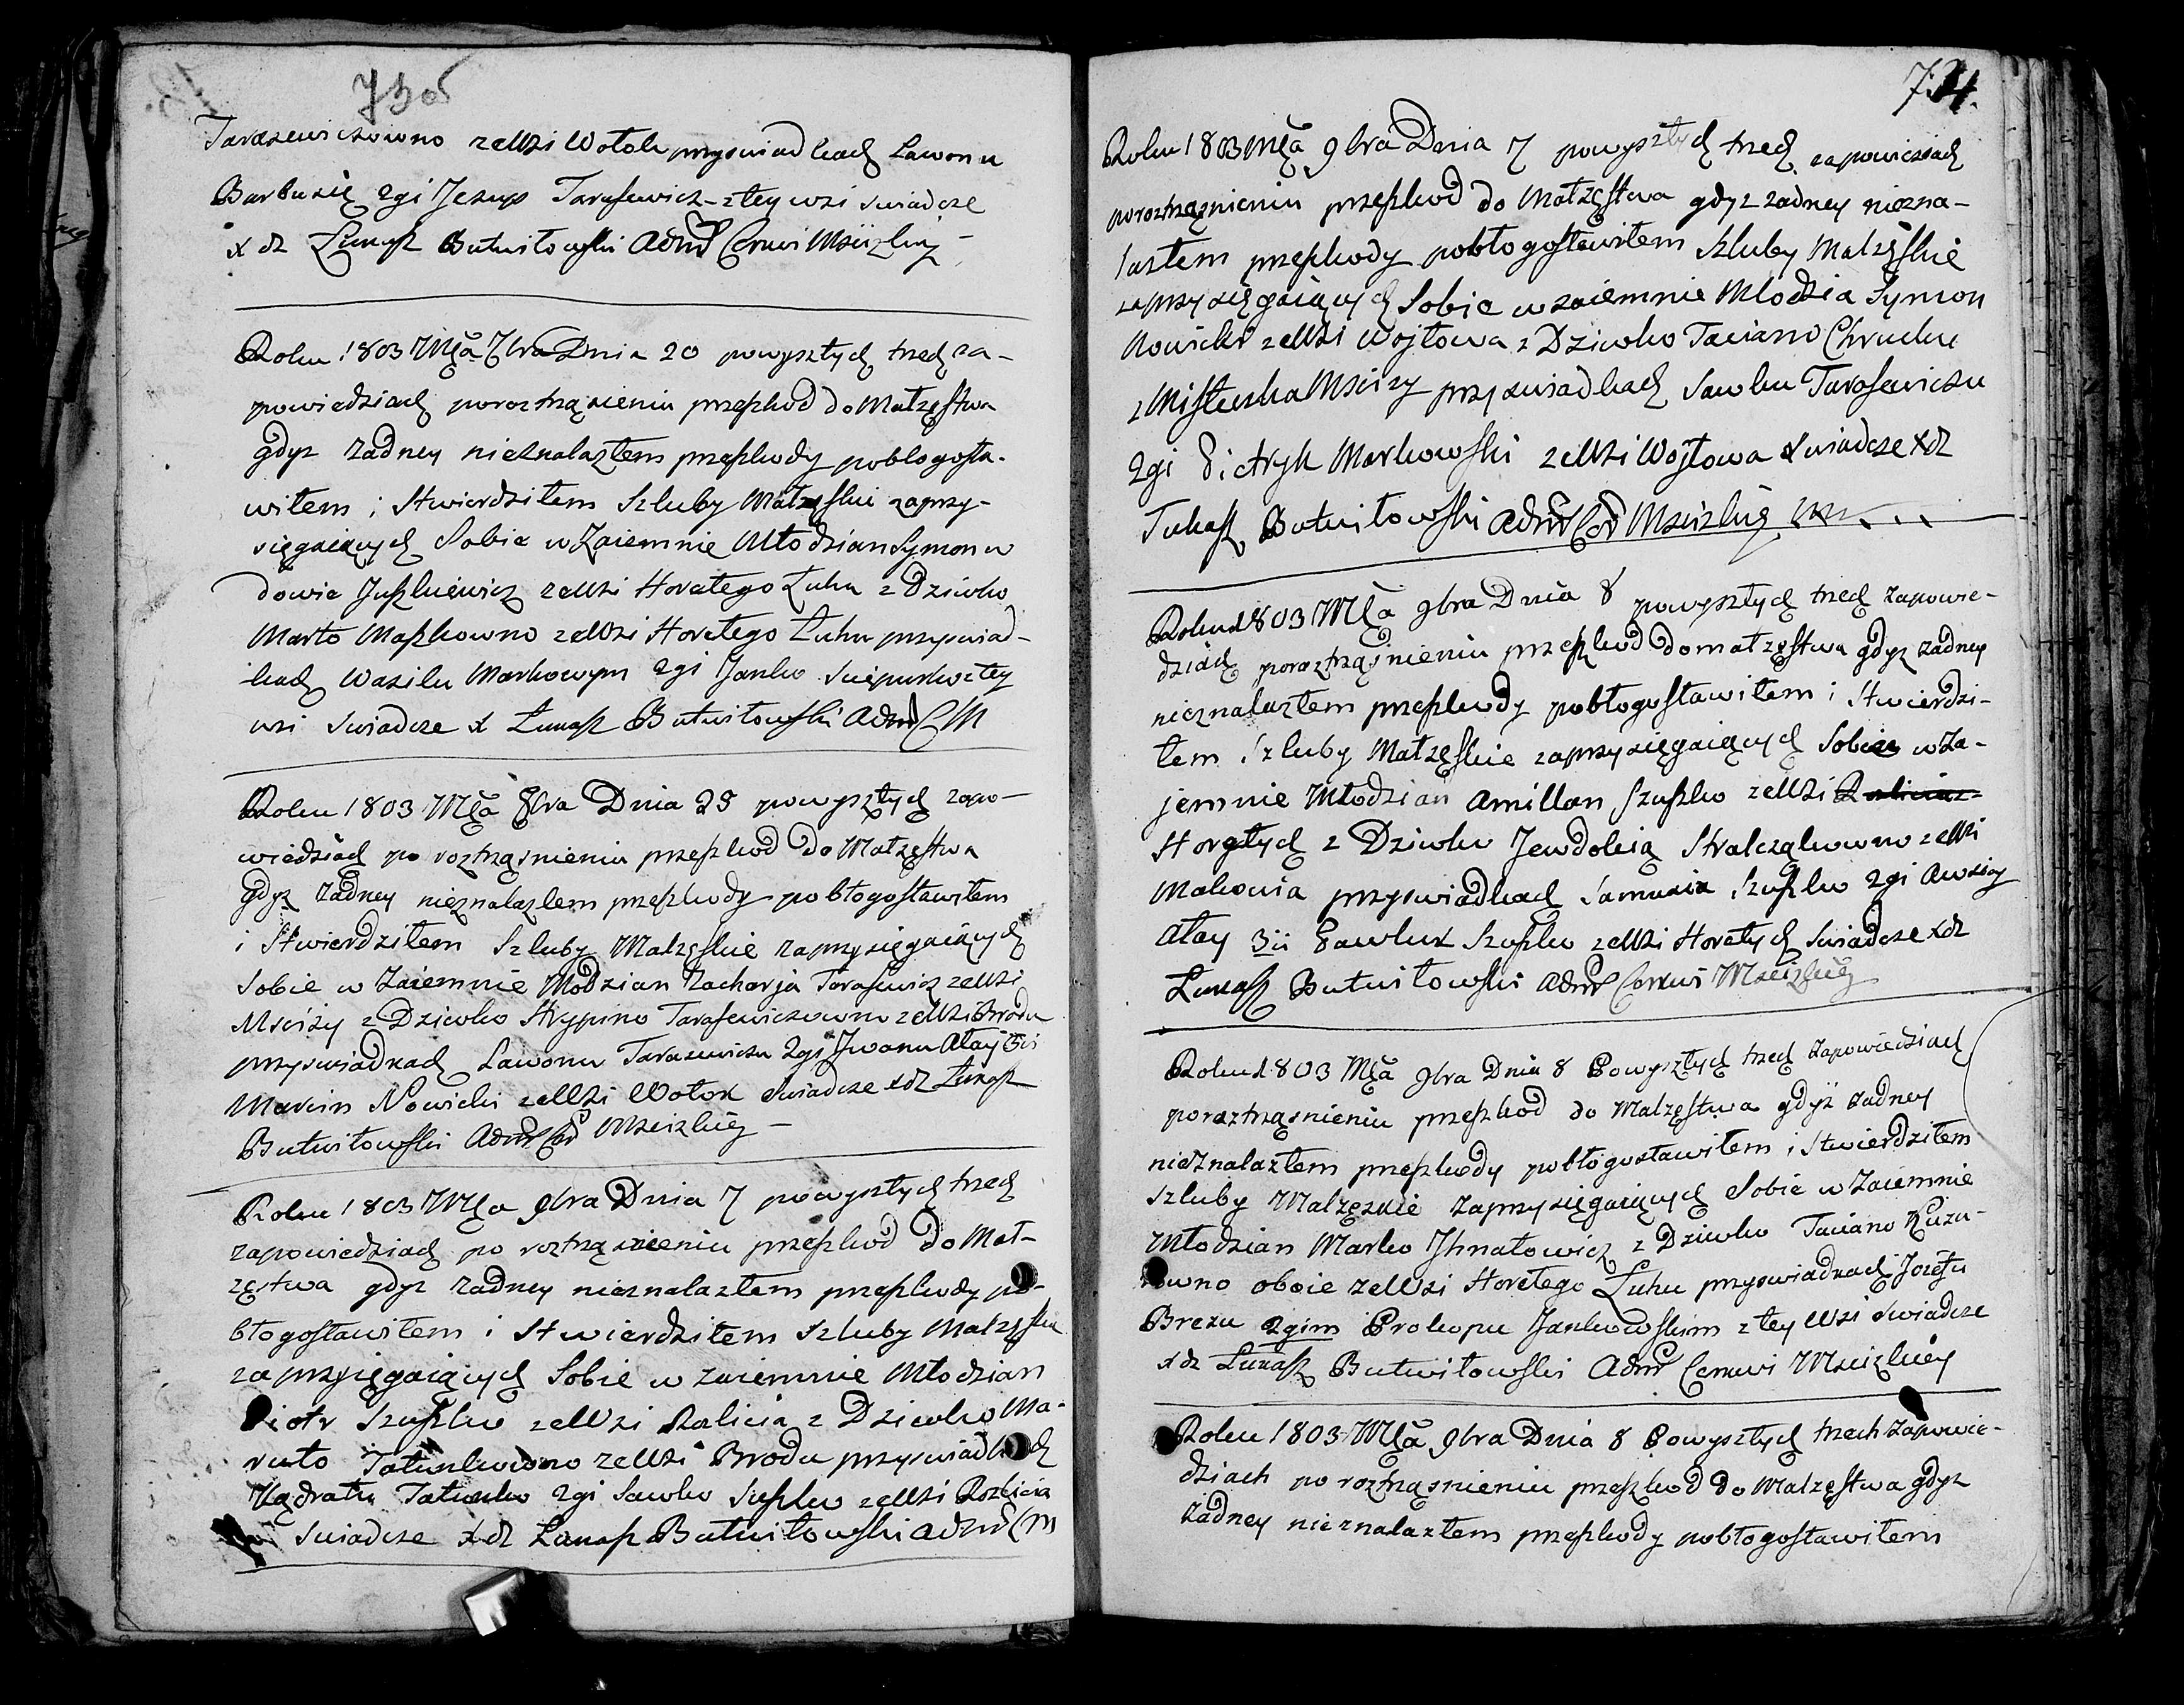 73об
Tarasewiczowno ze Wsi Wołok przyswiadkach Ławonu
Barbusię 2gi Jezup Tarasewicz z tey wsi swiadcze
x dz Łukasz Butwiłowski Admr Cerkwi Msciżkiey
Roku 1803 Mca 7bra Dnia 20 powyszłych trzech za-
powiedziach poroztrząsieniu przeszkod do Małzęstwa
gdyz zadney nieznalazłem przeszkody pobłogosła-
wiłem i Stwierdziłem Szluby Małzęskie zaprzy-
sięgaiących Sobie w Zaiemnie Młodzian Symon w
dowie Juszkiewicz ze Wsi Horełego Łuhu z Dziwko
Marto Maszkowno ze Wsi Horełego Łuhu przyswiad-
kach Wasilu Markowym 2gi Janko z tey
wsi Swiadcze x Łukasz Butwiłowski Admr C M
Roku 1803 Mca 8bra Dnia 25 powyszłych zapo-
wiedziach po roztrząsnieniu przeszkod do Małzęstwa
gdyz Zadney nieznalazłem przeszkody pobłogosławiłem
i Stwierdziłem Szluby Małzęskie zaprzysięgaiących
Sobie w Zaiemnie Młodzian Zacharja Tarasewicz ze Wsi
Mscizy z Dziewko Hrypino Tarasewiczowno ze Wsi Brodu
przyswiadkach Ławonu Tarasewiczu 2gi Jwanu Ałay 3ci
Marcin Nowicki ze Wsi Wołok Swiadcze x dz Łukasz
Butwiłowski Admr Cer Msciżkiey
Roku 1803 Mca 9bra Dnia 7 powyszłych trzech
zapowiedziach po roztrząsieniu przeszkod do Mał-
zęstwa gdyz zadney nieznalazłem przeszkody po-
błogosławiłem i Stwierdziłem Szluby Małzęskie
zaprzysięgaiących Sobie w zaiemnie Młodzian
Piotr Szuszko ze Wsi Zalicia z Dziewko Ma-
ruto Tatunkowno ze Wsi Brodu przyswiadkach
Kądratu Tatunko 2gi Sawko Suszko ze Wsi
Swiadcze x dz Łukasz Butwiłowski Admr C M
734.
Roku 1803 Mca 9bra Dnia 7 powyszłych trzech zapowiedziach
poroztrząsnieniu przeszkod do Małzęstwa gdyz zadney niezna-
lazłem przeszkody pobłogosławiłem Szluby Małzęskie
zaprzysięgaiących Sobie w zaiemnie Młodzia Symon
Nowicki ze Wsi Wojtowa z Dziwko Taciano Chrucku
z Misteczka Mscizy przyswiadkach Sawku Tarasewiczu
2gi Piotryk Markowski ze Wsi Wojtowa Swiadcze x dz
Łukasz Butwiłowski Admr Cer Msciżkiey
Roku 1803 Mca 9bra Dnia 8 powyszłych trzech zapowie-
dziach poroztrząsnieniu przeszkod do małzęstwa gdyz zadney
nieznalazłem przeszkody pobłogosławiłem i Stwierdzi-
łem Szluby Małzęskie zaprzysięgaiących Sobie w Za-
jemnie Młodzian Amillan Szuszko ze Wsi
Horełych z Dziwku Jewdokią Stralcząkowno ze Wsi
Makowia przyswiadkach Samusia Szuszko 2gi Awsiey
Ałay 3ii Pawluk Szuszko ze Wsi Horełych Swiadcze x dz
Łukasz Butwiłowski Admr Cerkwi Msciżkiey
Roku 1803 Mca 9bra Dnia 8 Powyszłych trzech zapowiedziach
poroztrząsnieniu przeszkod do Małzęstwa gdyż zadney
nieznalazłem przeszkody pobłogosławiłem i Stwierdziłem
Szluby Małzęskie zaprzysięgaiących Sobie w Zaiemnie
Młodzian Marko Jhnatowicz z Dziwko Taciano Kuzu-
rowno oboie ze Wsi Horełego Łuhu przyswiadkach Jozefu
Brezu 2gim Prokopu Jankowskim z tey Wsi Swiadcze
x dz Łukasz Butwiłowski Admr Cerkwi Msciżkiey
Roku 1803 Mca 9bra Dnia 8 Powyszłych trzech Zapowie-
dziach po roztrząsnieniu przeszkod do Małzęstwa gdyz
Zadney nieznalazłem przeszkody pobłogosławiłem